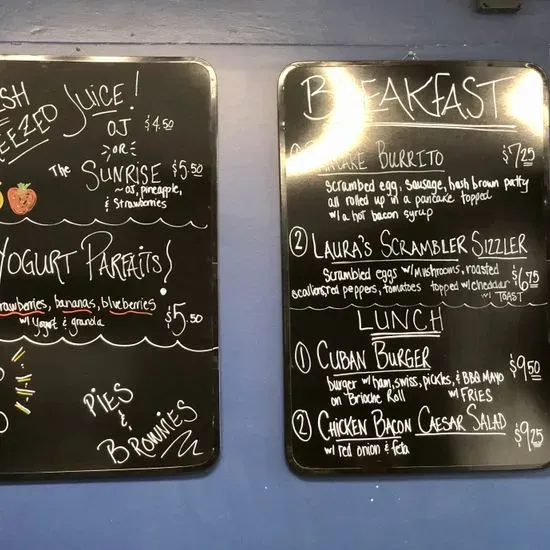 JUICE!
OJ $4.50
OR
The SUNRISE $5.50
~ OJ, pineapple,
& Strawberries
YOGURT PARFAITS!
bananas, blueberries
w/ Yogurt & granola
$5.50
PIES
&
BROWNIES
BREAKFAST
BURRITO $7.25
scrambled egg, sausage, hash brown patty
all rolled up in a pancake topped
w/ a hot bacon syrup
② LAURA'S SCRAMBLER SIZZLER
scrambled eggs w/ Mushrooms, roasted $6.75
peppers, tomatoes topped w/ cheddar
w/ TOAST
LUNCH
① CUBAN BURGER $9.50
burger w/ ham, swiss, pickles, & BBQ MAYO
on Brioche Roll w/ FRIES
② CHICKEN BACON CAESAR SALAD
w/ red onion & feta $9.25